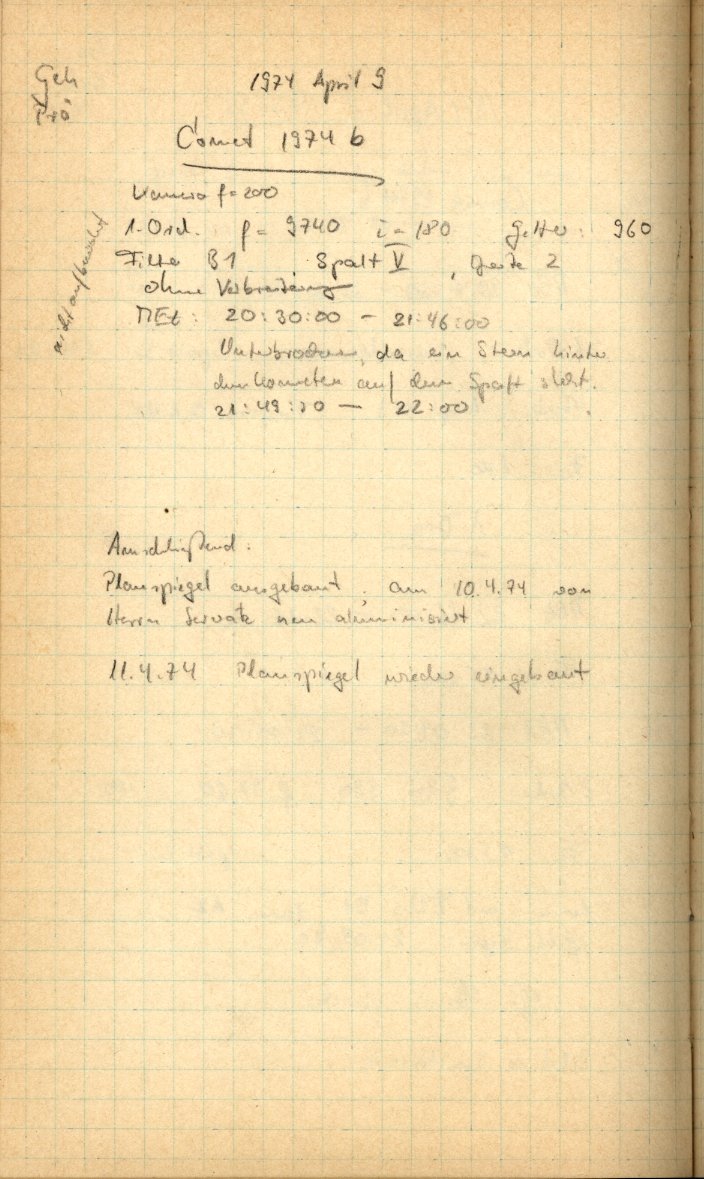 Geh
1974 April 9
Comet 1974 b
Kamera f=200
1. Ord. f= 9740 i=180 Gitter: 960
Filter B1 Spalt V, Breite 2
ohne Verbreiterung
MEZ: 20:30:00 – 21:46:00
Unterbrochen, da ein Stern hinter
dem Kometen auf dem Spalt steht.
21:49:30 — 22:00
nicht aufbewahrt
Anschließend:
Planspiegel ausgebaut, am 10.4.74 von
Herrn neu aluminisiert
11.4.74 Planspiegel wieder eingebaut